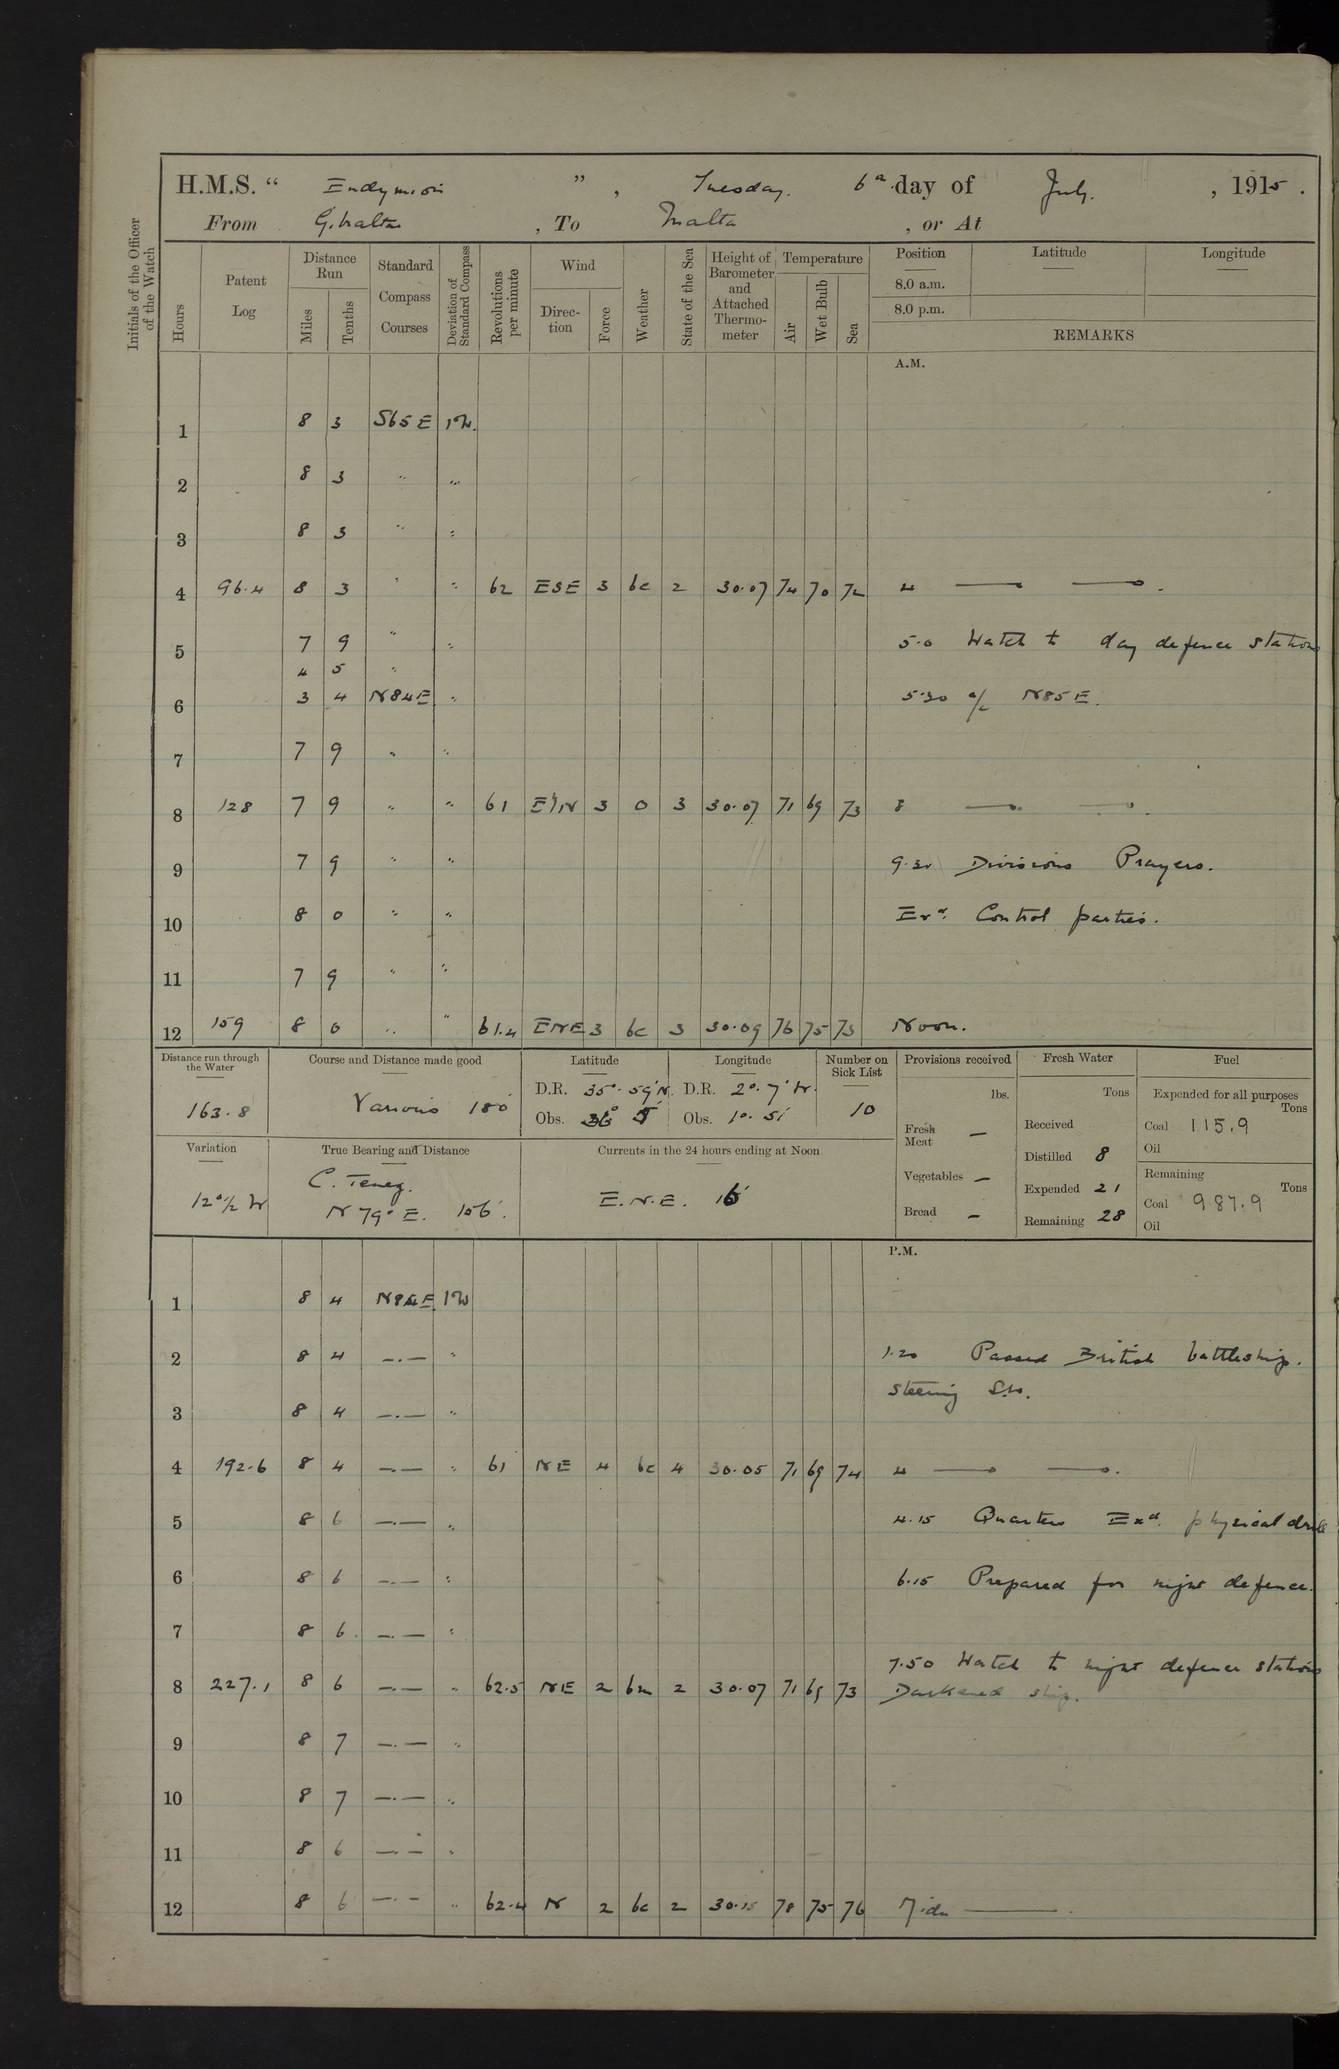 H.M.S. “ Endymion ” , Tuesday. 6th day of July. , 1915 .
From Gibraltar , To Malta , or At
Initials of the Officer of the Watch
Hours
Patent Log
Distance Run
Miles
Tenths
Standard Compass Courses
Deviation of Standard Compass
Revolutions per minute
Wind
Direc-tion
Force
Weather
State of the Sea
Height of Barometer and Attached Thermo-meter
Temperature
Air
Wet Bulb
Sea
Position Latitude Longitude
8.0 a.m.
8.0 p.m.
REMARKS
A.M.
1 8 3 S65E 1W.
2 8 3 " "
3 8 3 " "
4 96.4 8 3 " " 62 ESE 3 bc 2 30.07 74 70 72 4 — — .
5 7 9 " " 5.0 Watch to day defence stations
4 5 "
6 3 4 N84E " 5.30 a/c N85E.
7 7 9 " "
8 128 7 9 " " 61 E/N 3 o 3 30.07 71 69 73 8 — — .
9 7 9 " " 9.30 Divisions Prayers.
10 8 0 " " Exd. Control parties.
11 7 9 " "
12 159 8 0 " " 61.4 ENE 3 bc 3 30.09 76 75 73 Noon.
Distance run through the Water
163.8
Course and Distance made good
Various 180'
Latitude Longitude
D.R. 35°.59'N. D.R. 2°.7'W.
Obs. 36° 5' Obs. 1°.51'
Number on Sick List
10
Provisions received
lbs.
Fresh Meat —
Vegetables —
Bread —
Fresh Water
Tons
Received
Distilled 8
Expended 21
Remaining 28
Fuel
Expended for all purposes
Tons
Coal 115.9
Oil
Remaining
Tons
Coal 987.9
Oil
Variation
12°½ W
True Bearing and Distance
C. Tenez.
N 79° E. 156'.
Currents in the 24 hours ending at Noon
E.N.E. 16'
P.M.
1 8 4 N84E 1W
2 8 4 —.— " 1.20 Passed British battleship.
steering SW.
3 8 4 —.— "
4 192.6 8 4 —.— " 61 NE 4 bc 4 30.05 71 69 74 4 — — .
5 8 6 —.— " 4.15 Quarters Exd. physical drill
6 8 6 —.— " 6.15 Prepared for night defence.
7 8 6 —.— "
7.50 Watch to night defence stations
8 227.1 8 6 —.— " 62.5 NE 2 bm 2 30.07 71 69 73 Darkened ship.
9 8 7 —.— "
10 8 7 —.— "
11 8 6 —.— "
12 8 6 —.— " 62.4 N 2 bc 2 30.15 78 75 76 Midn — .